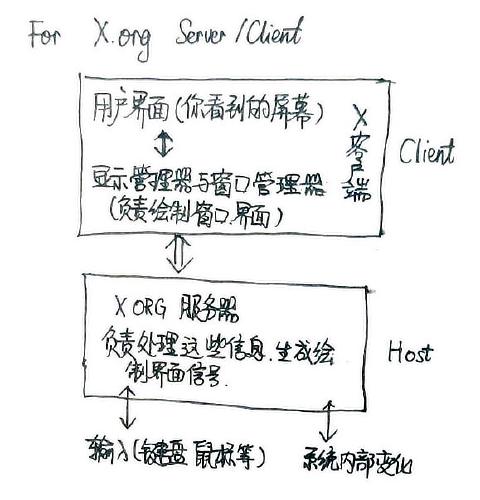 For X.org Server/Client
用户界面(你看到的屏幕)
显示管理器与窗口管理器
(负责绘制窗口.界面)
X客户端
Client
X ORG 服务器
负责处理这些信息.生成绘
制界面信号.
Host
输入(键盘 鼠标等)
系统内部变化